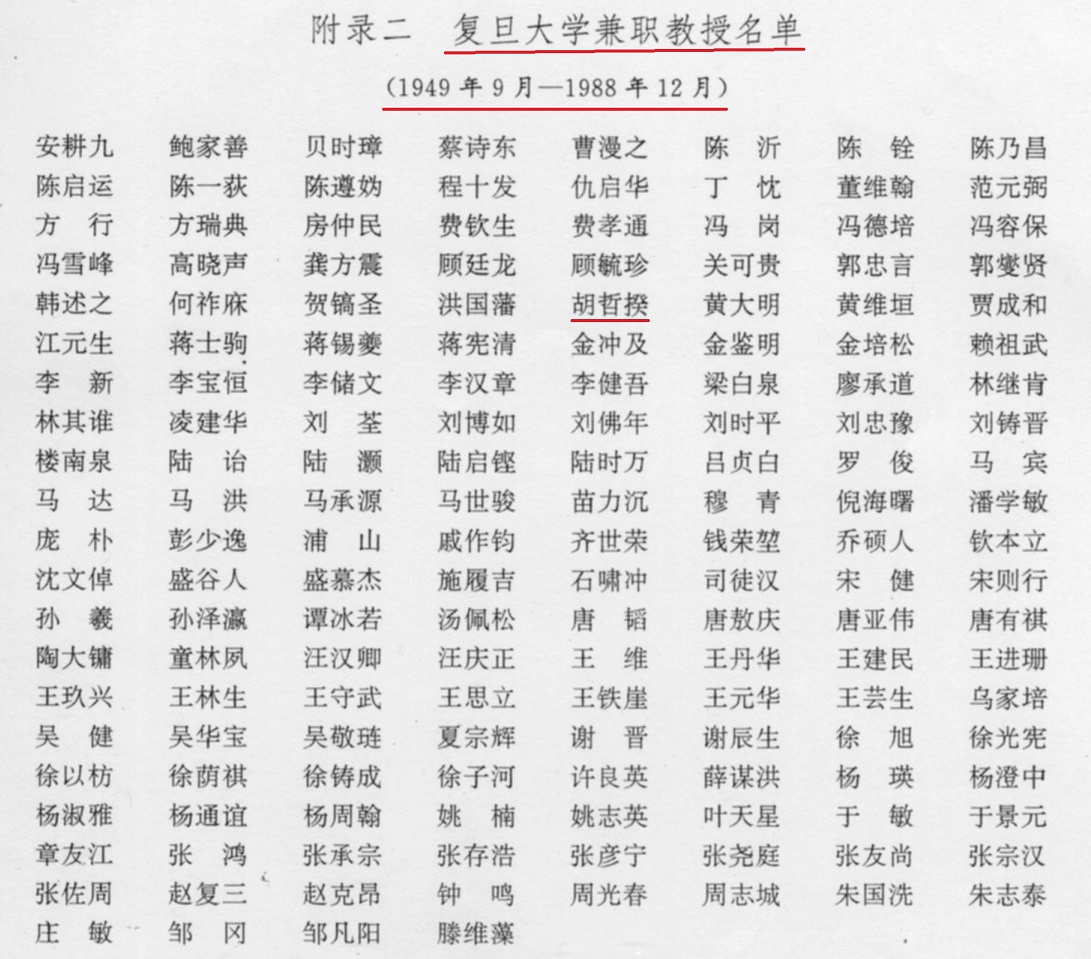 附录二 复旦大学兼职教授名单
(1949 年 9 月—1988 年 12 月)
安耕九 鲍家善 贝时璋 蔡诗东 曹漫之 陈 沂 陈 铨 陈乃昌
陈启运 陈一荻 陈遵妫 程十发 仇启华 丁 忱 董维翰 范元弼
方 行 方瑞典 房仲民 费钦生 费孝通 冯 岗 冯德培 冯容保
冯雪峰 高晓声 龚方震 顾廷龙 顾毓珍 关可贵 郭忠言 郭燮贤
韩述之 何祚庥 贺镐圣 洪国藩 胡哲揆 黄大明 黄维垣 贾成和
江元生 蒋士驹 蒋锡夔 蒋宪清 金冲及 金鉴明 金培松 赖祖武
李 新 李宝恒 李储文 李汉章 李健吾 梁白泉 廖承道 林继肯
林其谁 凌建华 刘 荃 刘博如 刘佛年 刘时平 刘忠豫 刘铸晋
楼南泉 陆 诒 陆 灏 陆启铿 陆时万 吕贞白 罗 俊 马 宾
马 达 马 洪 马承源 马世骏 苗力沉 穆 青 倪海曙 潘学敏
庞 朴 彭少逸 浦 山 戚作钧 齐世荣 钱荣堃 乔硕人 钦本立
沈文倬 盛谷人 盛慕杰 施履吉 石啸冲 司徒汉 宋 健 宋则行
孙 羲 孙泽瀛 谭冰若 汤佩松 唐 韬 唐敖庆 唐亚伟 唐有祺
陶大镛 童林夙 汪汉卿 汪庆正 王 维 王丹华 王建民 王进珊
王玖兴 王林生 王守武 王思立 王铁崖 王元华 王芸生 乌家培
吴 健 吴华宝 吴敬琏 夏宗辉 谢 晋 谢辰生 徐 旭 徐光宪
徐以枋 徐荫祺 徐铸成 徐子河 许良英 薛谋洪 杨 瑛 杨澄中
杨淑雅 杨通谊 杨周翰 姚 楠 姚志英 叶天星 于 敏 于景元
章友江 张 鸿 张承宗 张存浩 张彦宁 张尧庭 张友尚 张宗汉
张佐周 赵复三 赵克昂 钟 鸣 周光春 周志城 朱国洗 朱志泰
庄 敏 邹 冈 邹凡阳 滕维藻